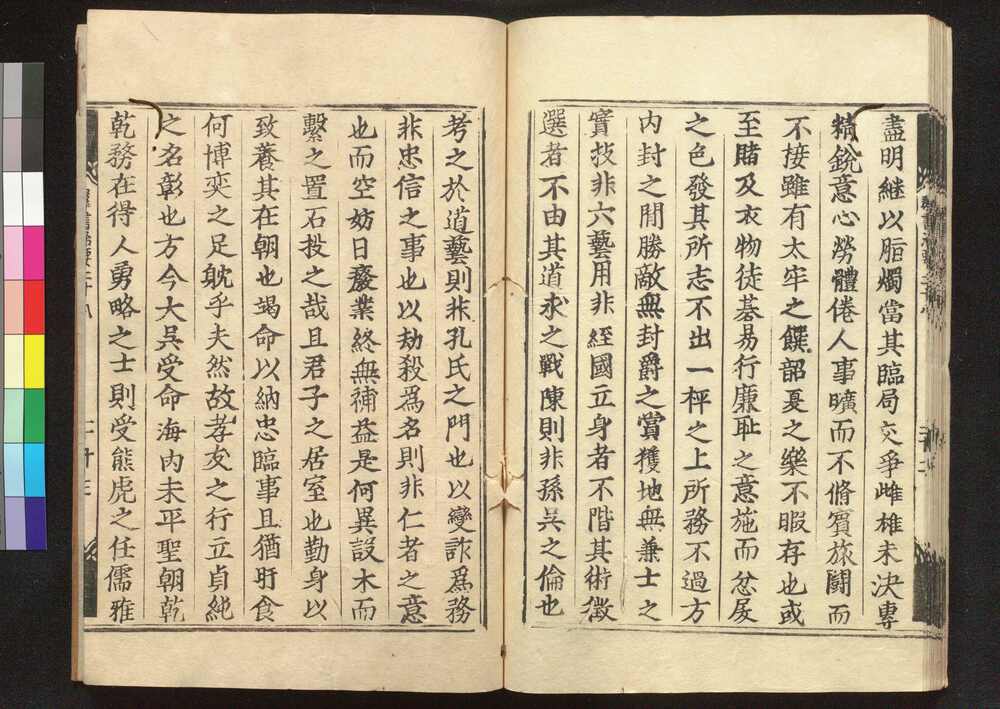 盡明継以脂燭當其臨局交爭雌雄未決專
精銳意心勞體倦人事曠而不脩賓旅闕而
不接雖有太牢之饌韶夏之樂不暇存也或
至賭及衣物徒碁易行廉耻之意施而忿戾
之色發其所志不出一枰之上所務不過方
内封之間勝敵無封爵之賞獲地無兼士之
實技非六藝用非經國立身者不階其術徴
選者不由其道求之戰陳則非孫吳之倫也
考之於道藝則非孔氏之門也以變詐爲務
非忠信之事也以劫殺爲名則非仁者之意
也而空妨日廢業終無補益是何異設木而
繫之置石投之哉且君子之居室也勤身以
致養其在朝也竭命以納忠臨事且猶旰食
何博奕之足躭乎夫然故孝友之行立貞純
之名彰也方今大吳受命海内未平聖朝乾
乾務在得人勇略之士則受熊虎之任儒雅